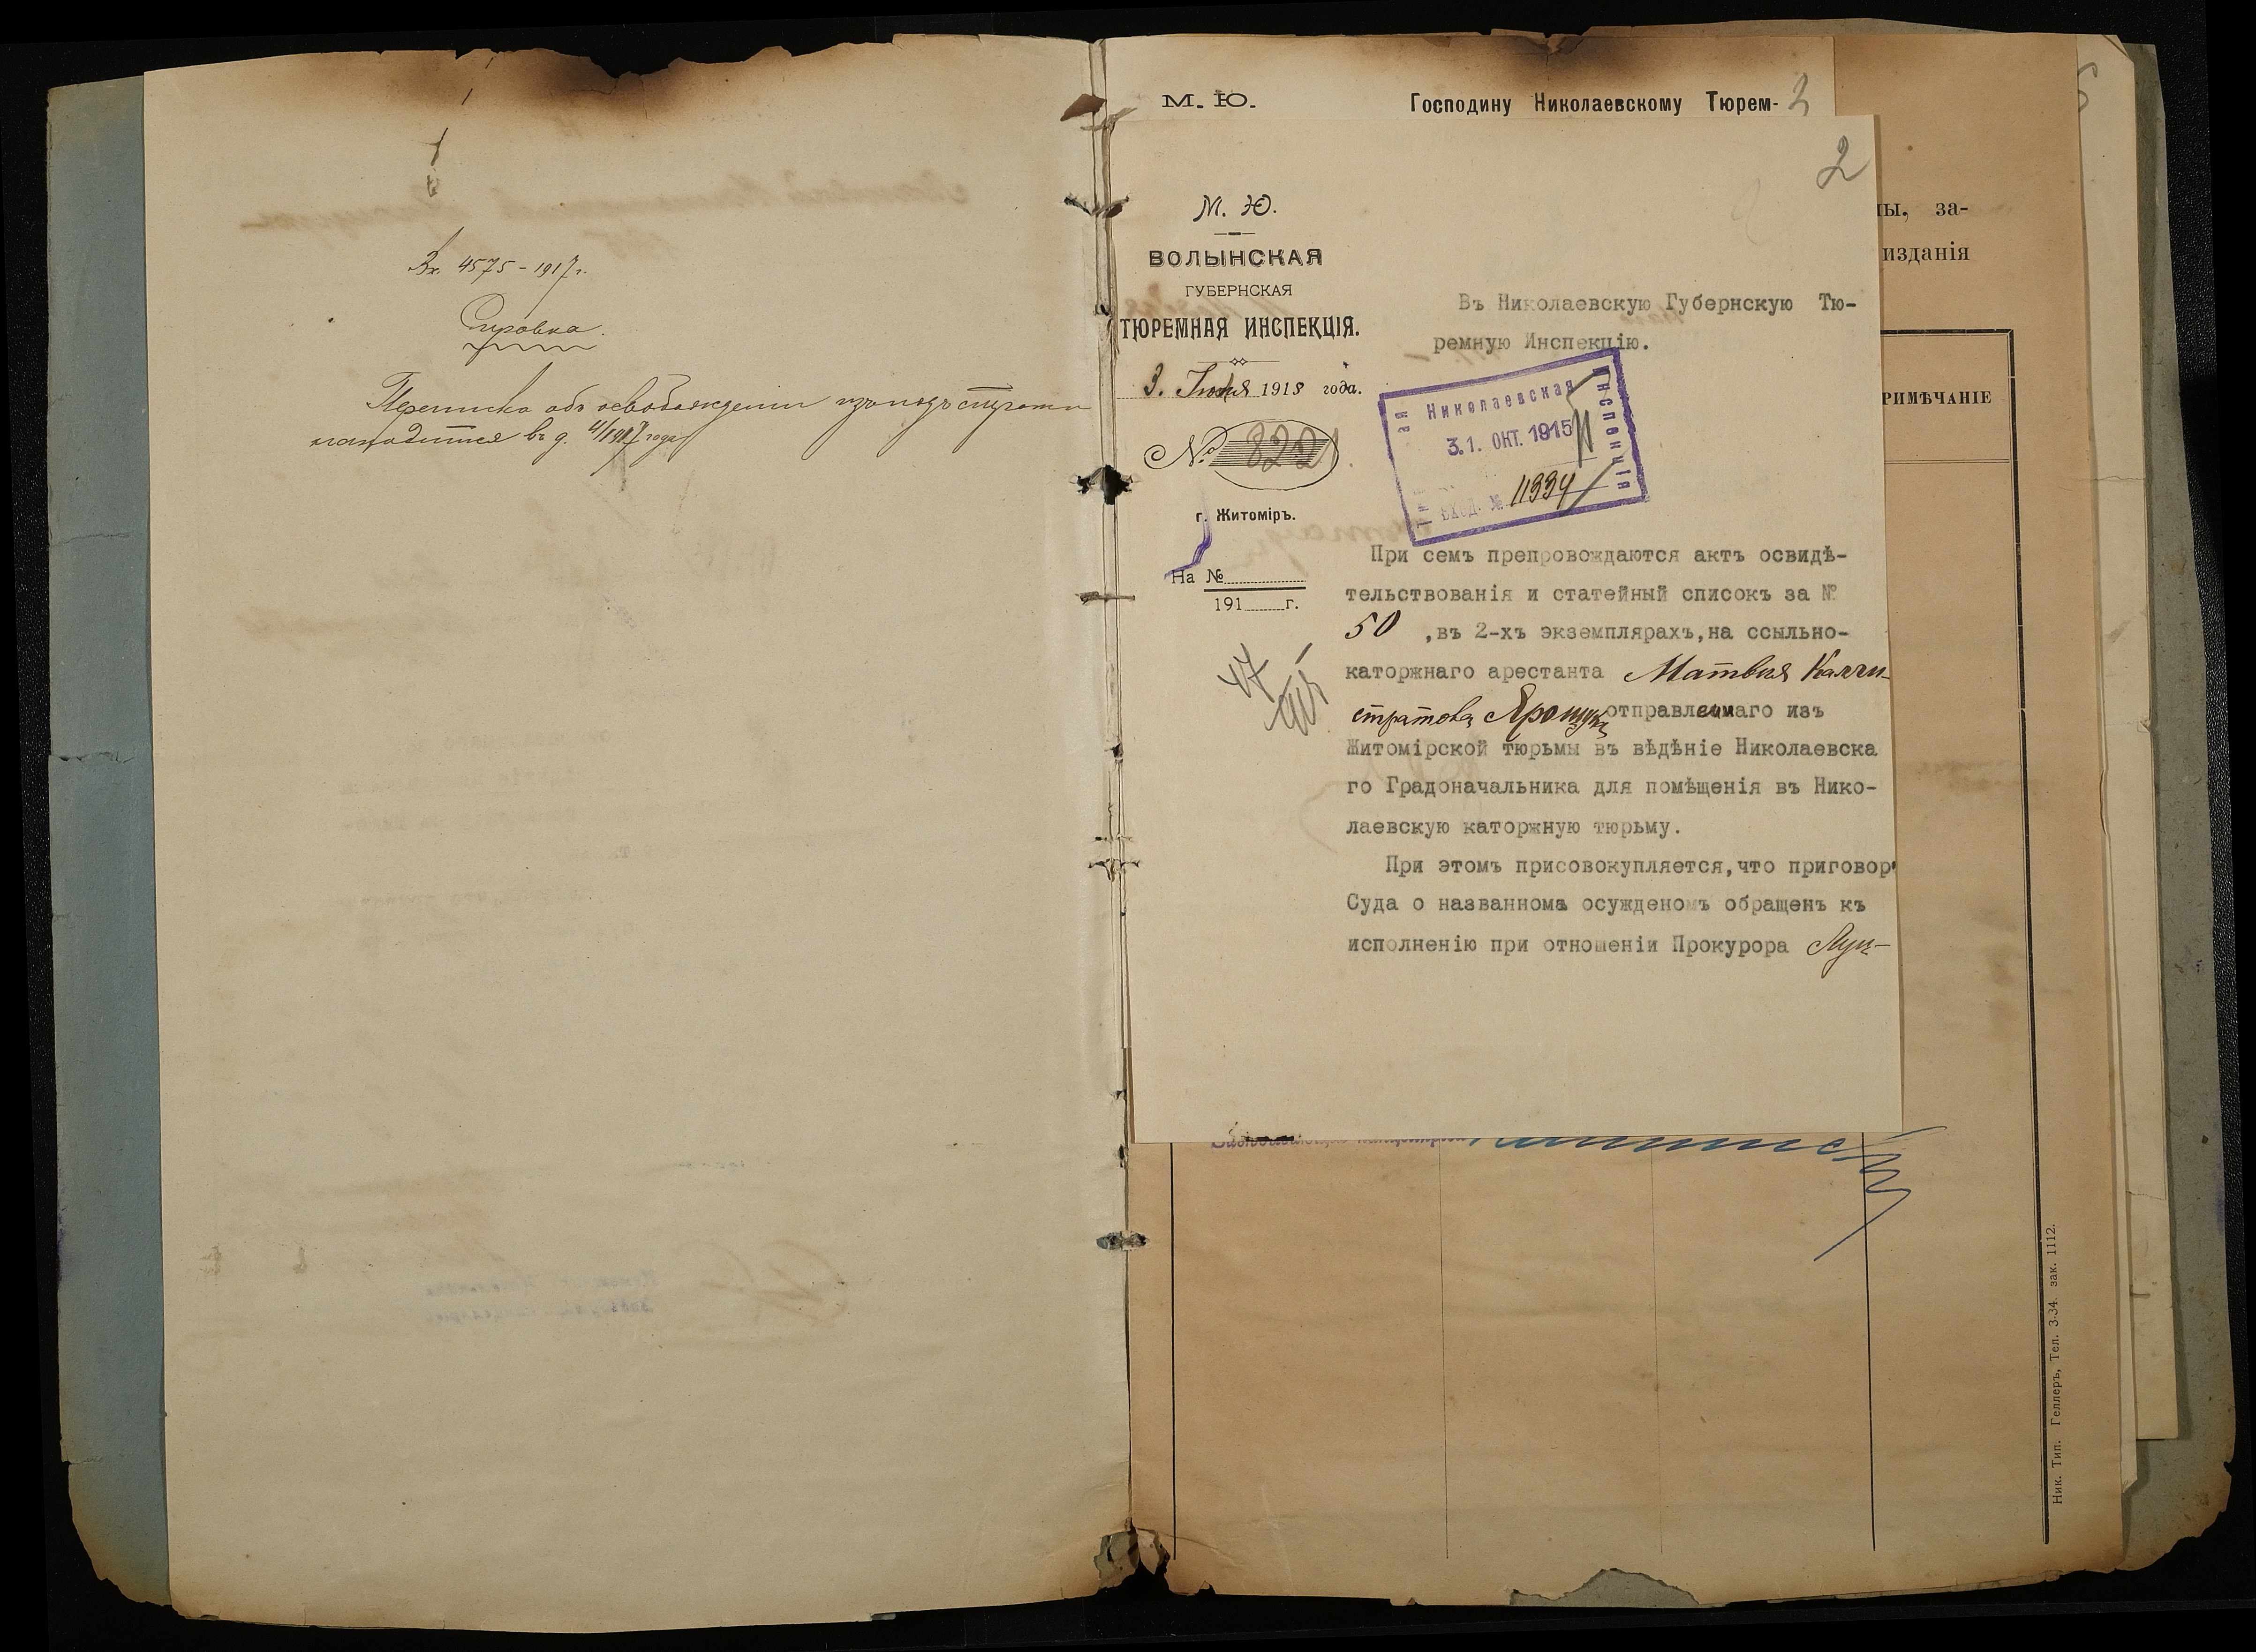 Вх. 4575 - 1917 г.
Справка.
Переписка объ освобожденіи изъ подъ стражи
находится въ д. 4/1917 года
М. Ю.
Господину Николаевскому Тюрем-
3
2
М. Ю.
ВОЛЫНСКАЯ
ГУБЕРНСКАЯ
ТЮРЕМНАЯ ИНСПЕКЦІЯ.
3. 1915 года.
№ 8221.
г. Житоміръ.
На №
191 г.
Въ Николаевскую Губернскую Тю-
ремную Инспекцію.
Николаевская
Инспекція
31. ОКТ. 1915
Вход. № 11334
При семъ препровождаются актъ освидѣ-
тельствованія и статейный списокъ за №
50 ,въ 2-хъ экземплярахъ,на ссыльно-
каторжнаго арестанта Матвѣя Калли-
стратова Ярощука отправленнаго изъ
Житомірской тюрьмы въ вѣдѣніе Николаевска
го Градоначальника для помѣщенія въ Нико-
лаевскую каторжную тюрьму.
При этомъ присовокупляется,что приговоръ
Суда о названномъ осужденомъ обращенъ къ
исполненію при отношеніи Прокурора Луц-
ны, за-
изданія
РИМѢЧАНІЕ
Ник. Тип. Геллеръ, Тел. 3-34. зак. 1112.